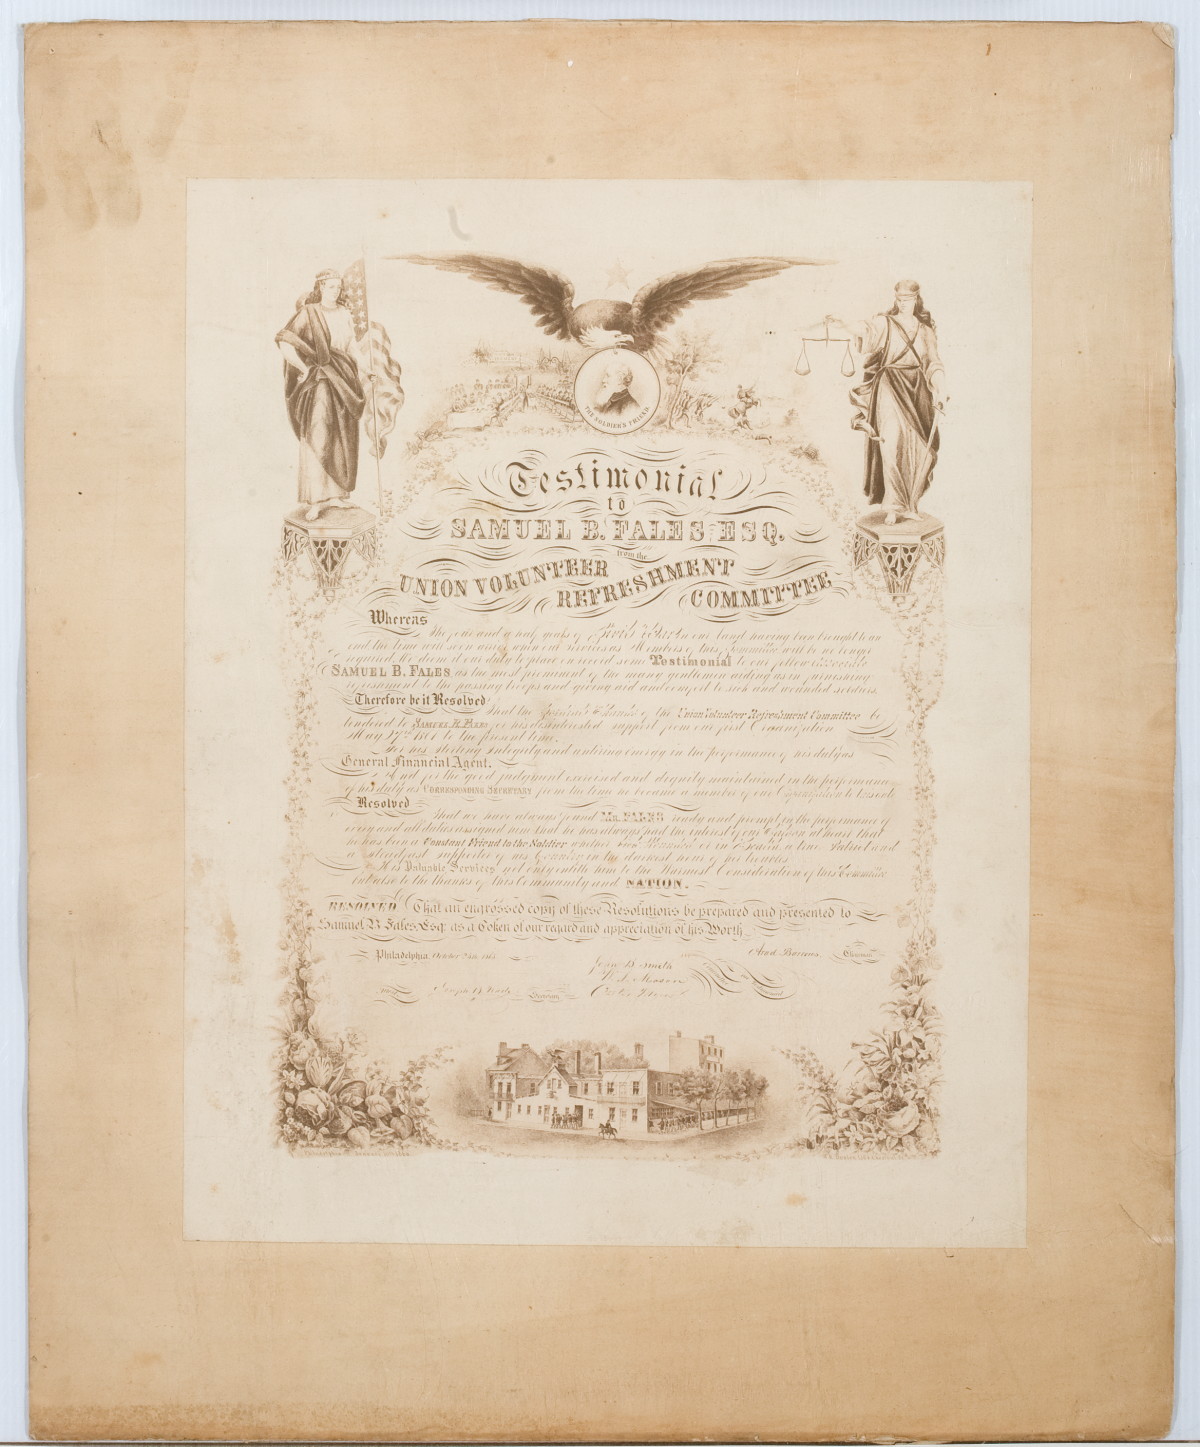 THE SOLDIER'S FRIEND
Testimonial
to
SAMUEL B. FALES ESQ.
from the
UNION VOLUNTEER REFRESHMENT COMMITTEE
Whereas The four and a half years of Civil in our land having been brought to an
end the time will soon arrive when our Services as Members of this Committee will be no longer
required, We deem it our duty to place on record some Testimonial to our fellow
SAMUEL B. FALES, as the most prominent of the many gentlemen aiding us in furnishing
refreshment to the passing troops and giving aid and comfort to sick and wounded soldiers.
Therefore be it Resolved That the Thanks of the Union Volunteer Refreshment Committee be
tendered to SAMUEL B. FALES, for his disinterested support from our first Organization
May 27th 1861 to the present time.
For his Sterling Integrity and untiring energy in the performance of his duty as
General Financial Agent.
And for the good judgment exercised and dignity maintained in the performance
of his duty as CORRESPONDING SECRETARY from the time he became a member of our Organization to
Resolved
That we have always found MR. FALES ready and prompt in the performance of
every and all duties assigned him that he has always had the interest of our at heart that
he has been a Constant Friend to the Soldier whether Wounded or in Health a true Patriot and
a Steadfast supporter of his Country in the darkest hour of her troubles
His Valuable Services not only entitle him to the Warmest Consideration of this Committee
but also to the thanks of this Community and NATION.
RESOLVED That an engrossed copy of these Resolutions be prepared and presented to
Samuel B. Fales, Esq. as a Token of our regard and appreciation of his Worth
Philadelphia, October
Chairman
B. Smith
Secretary